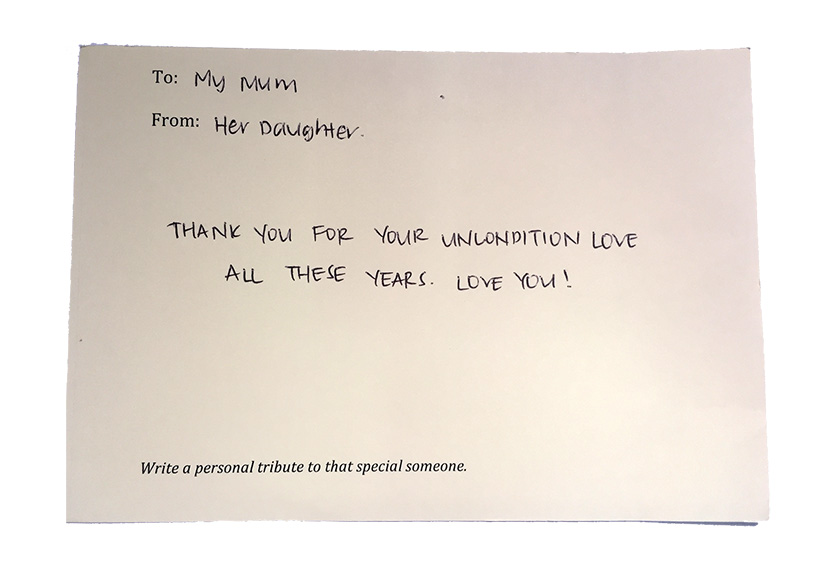 To: My Mum
From: Her Daughter.
THANK YOU FOR YOUR UNCONDITION LOVE
ALL THESE YEARS. LOVE YOU!
Write a personal tribute to that special someone.